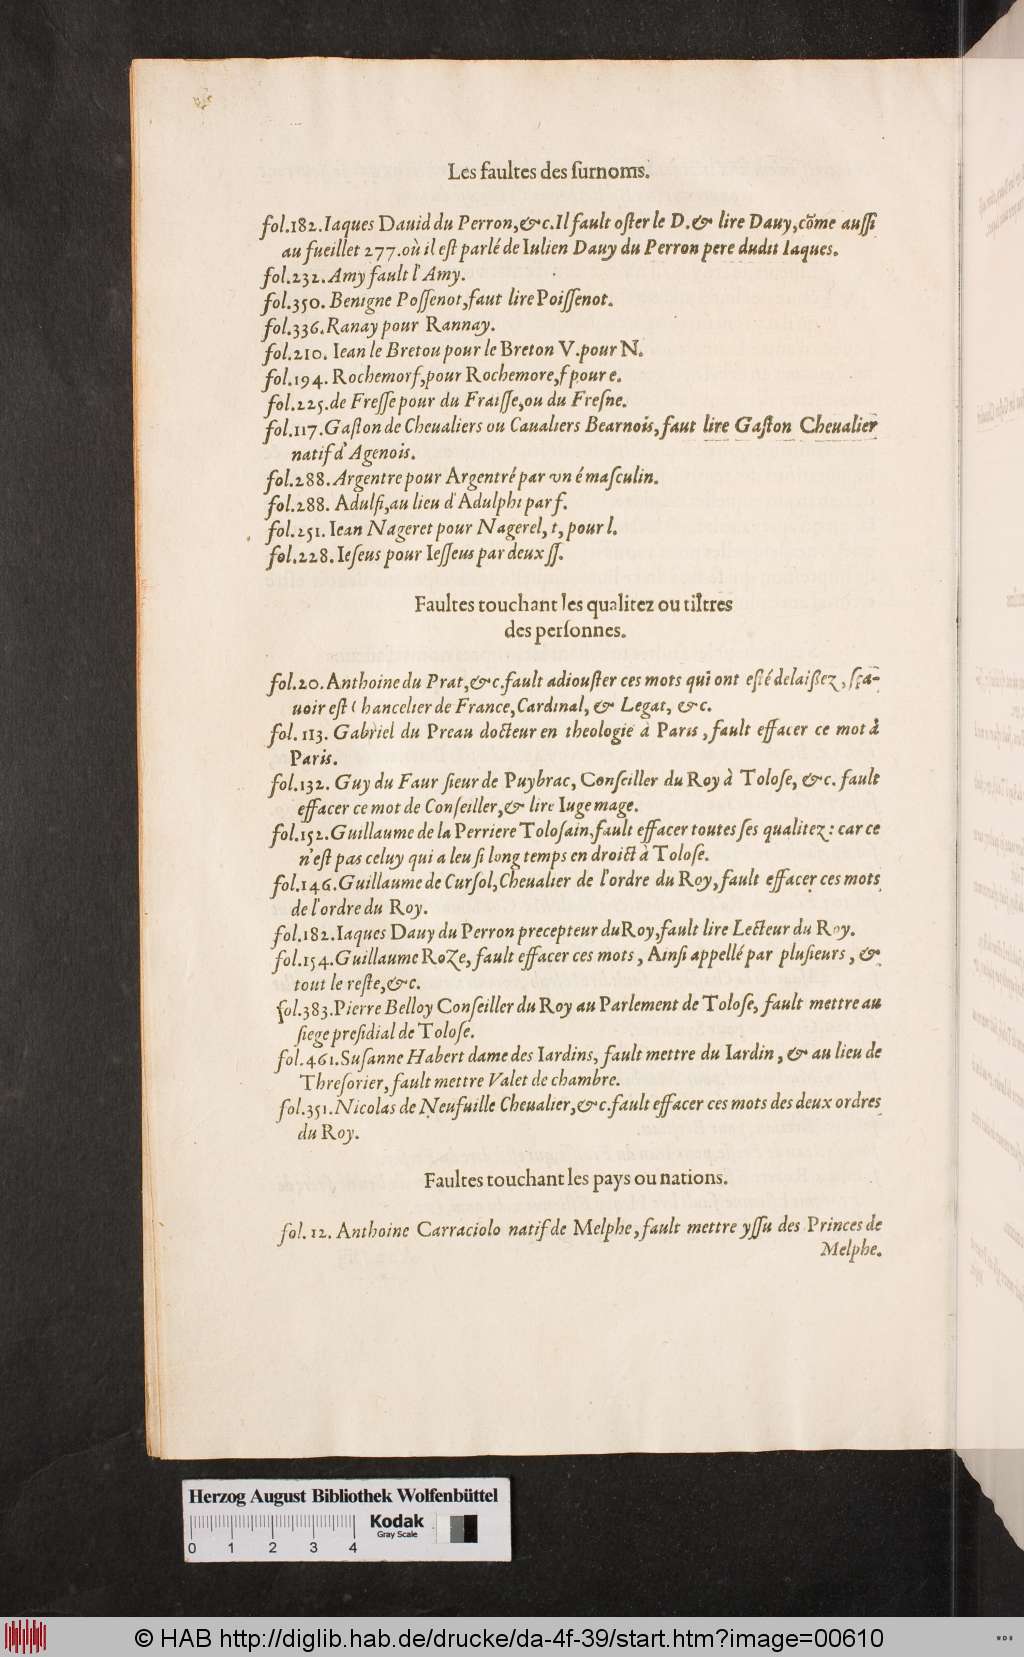 Les faultes des ſurnoms.
fol.182.Iaques Dauid du Perron,&c.Il fault oſter le D.& lire Dauy,cõme auſſi
au fueillet 277.où il eſt parlé de Iulien Dauy du Perron pere dudit Iaques.
fol.232.Amy fault l'Amy.
fol.350. Benigne Poſſenot,faut lire Poiſſenot.
fol.336.Ranay pour Rannay.
fol.210. Iean le Bretou pour le Breton V.pour N.
fol.194. Rochemorf,pour Rochemore,f pour e.
fol.225.de Freſſe pour du Fraiſſe,ou du Freſne.
fol.117.Gaſton de Cheualiers ou Caualiers Bearnois,faut lire Gaſton Cheualier
natif d'Agenois.
fol.288.Argentre pour Argentré par vn é maſculin.
fol.288. Adulfi,au lieu d'Adulphi par f.
fol.251. Iean Nageret pour Nagerel, t, pour l.
fol.228.Ieſeus pour Ieſſeus par deux ſſ.
Faultes touchant les qualitez ou tiltres
des perſonnes.
fol.20.Anthoine du Prat,&c.fault adiouſter ces mots qui ont eſté delaißez, ſça-
uoir eſt Chancelier de France,Cardinal, & Legat, &c.
fol. 113. Gabriel du Preau docteur en theologie à Paris, fault effacer ce mot à
Paris.
fol.132. Guy du Faur ſieur de Puybrac, Conſeiller du Roy à Toloſe, &c. fault
effacer ce mot de Conſeiller,& lire Iuge mage.
fol.152.Guillaume de la Perriere Toloſain,fault effacer toutes ſes qualitez: car ce
n'eſt pas celuy qui a leu ſi long temps en droict à Toloſe.
fol.146.Guillaume de Curſol,Cheualier de l'ordre du Roy,fault effacer ces mots
de l'ordre du Roy.
fol.182.Iaques Dauy du Perron precepteur du Roy,fault lire Lecteur du Roy.
fol.154.Guillaume Roze, fault effacer ces mots, Ainſi appellé par pluſieurs, &
tout le reſte,&c.
fol.383.Pierre Belloy Conſeiller du Roy au Parlement de Toloſe, fault mettre au
ſiege preſidial de Toloſe.
fol.461.Suſanne Habert dame des Iardins, fault mettre du Iardin, & au lieu de
Threſorier, fault mettre Valet de chambre.
fol.351.Nicolas de Neufuille Cheualier,&c.fault effacer ces mots des deux ordres
du Roy.
Faultes touchant les pays ou nations.
fol. 12. Anthoine Carraciolo natif de Melphe, fault mettre yſſu des Princes de
Melphe.
Herzog August Bibliothek Wolfenbüttel
Kodak
Gray Scale
0 1 2 3 4
© HAB http://diglib.hab.de/drucke/da-4f-39/start.htm?image=00610